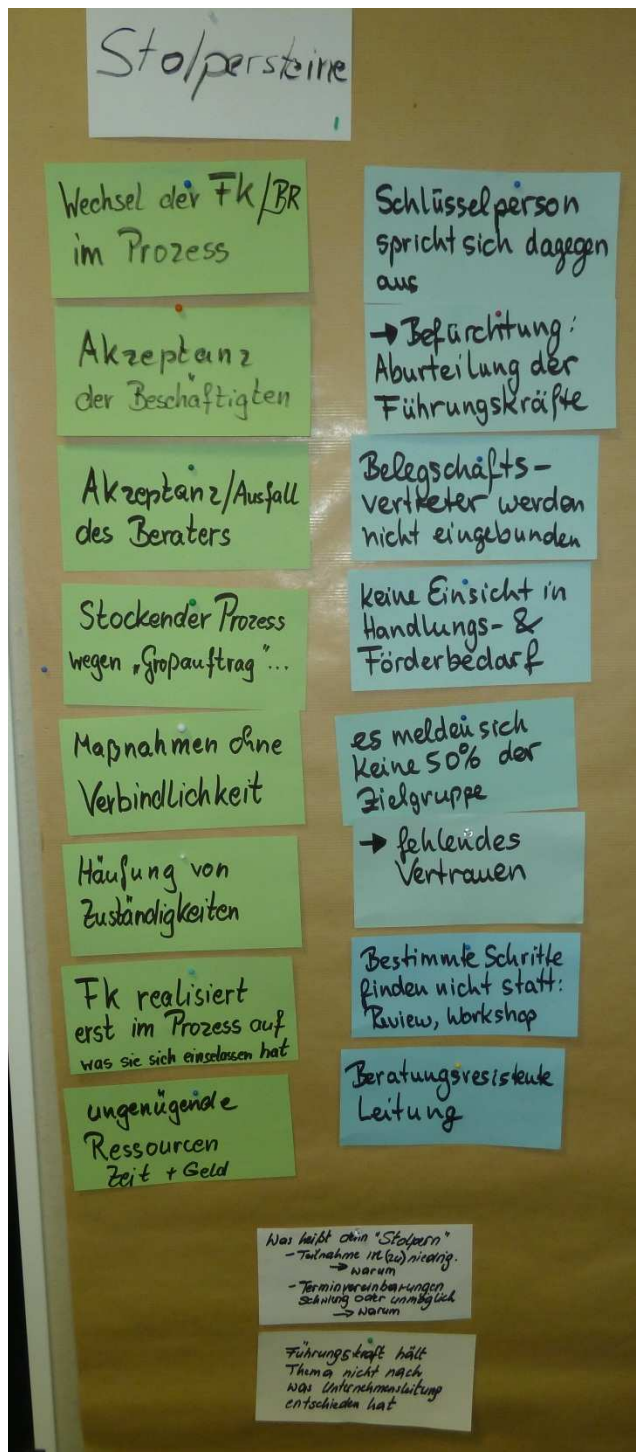 Stolpersteine
Wechsel der Fk/BR
im Prozess
Akzeptanz
der Beschäftigten
Akzeptanz/Ausfall
des Beraters
Stockender Prozess
wegen „Großauftrag"...
Maßnahmen ohne
Verbindlichkeit
Häufung von
Zuständigkeiten
Fk realisiert
erst im Prozess auf
was sie sich eingelassen hat
ungenügende
Ressourcen
Zeit + Geld
Schlüsselperson
spricht sich dagegen
aus
→ Befürchtung:
Aburteilung der
Führungskräfte
Belegschafts-
vertreter werden
nicht eingebunden
keine Einsicht in
Handlungs- &
Förderbedarf
es melden sich
keine 50% der
Zielgruppe
→ fehlendes
Vertrauen
Bestimmte Schritte
finden nicht statt:
Review, Workshop
Beratungsresistente
Leitung
Was heißt denn "Stolpern"
- Teilnahme ist (zu) niedrig.
→ warum
- Terminvereinbarungen
schwierig oder unmöglich
→ warum
Führungskraft hält
Thema nicht nach
was Unternehmensleitung
entschieden hat